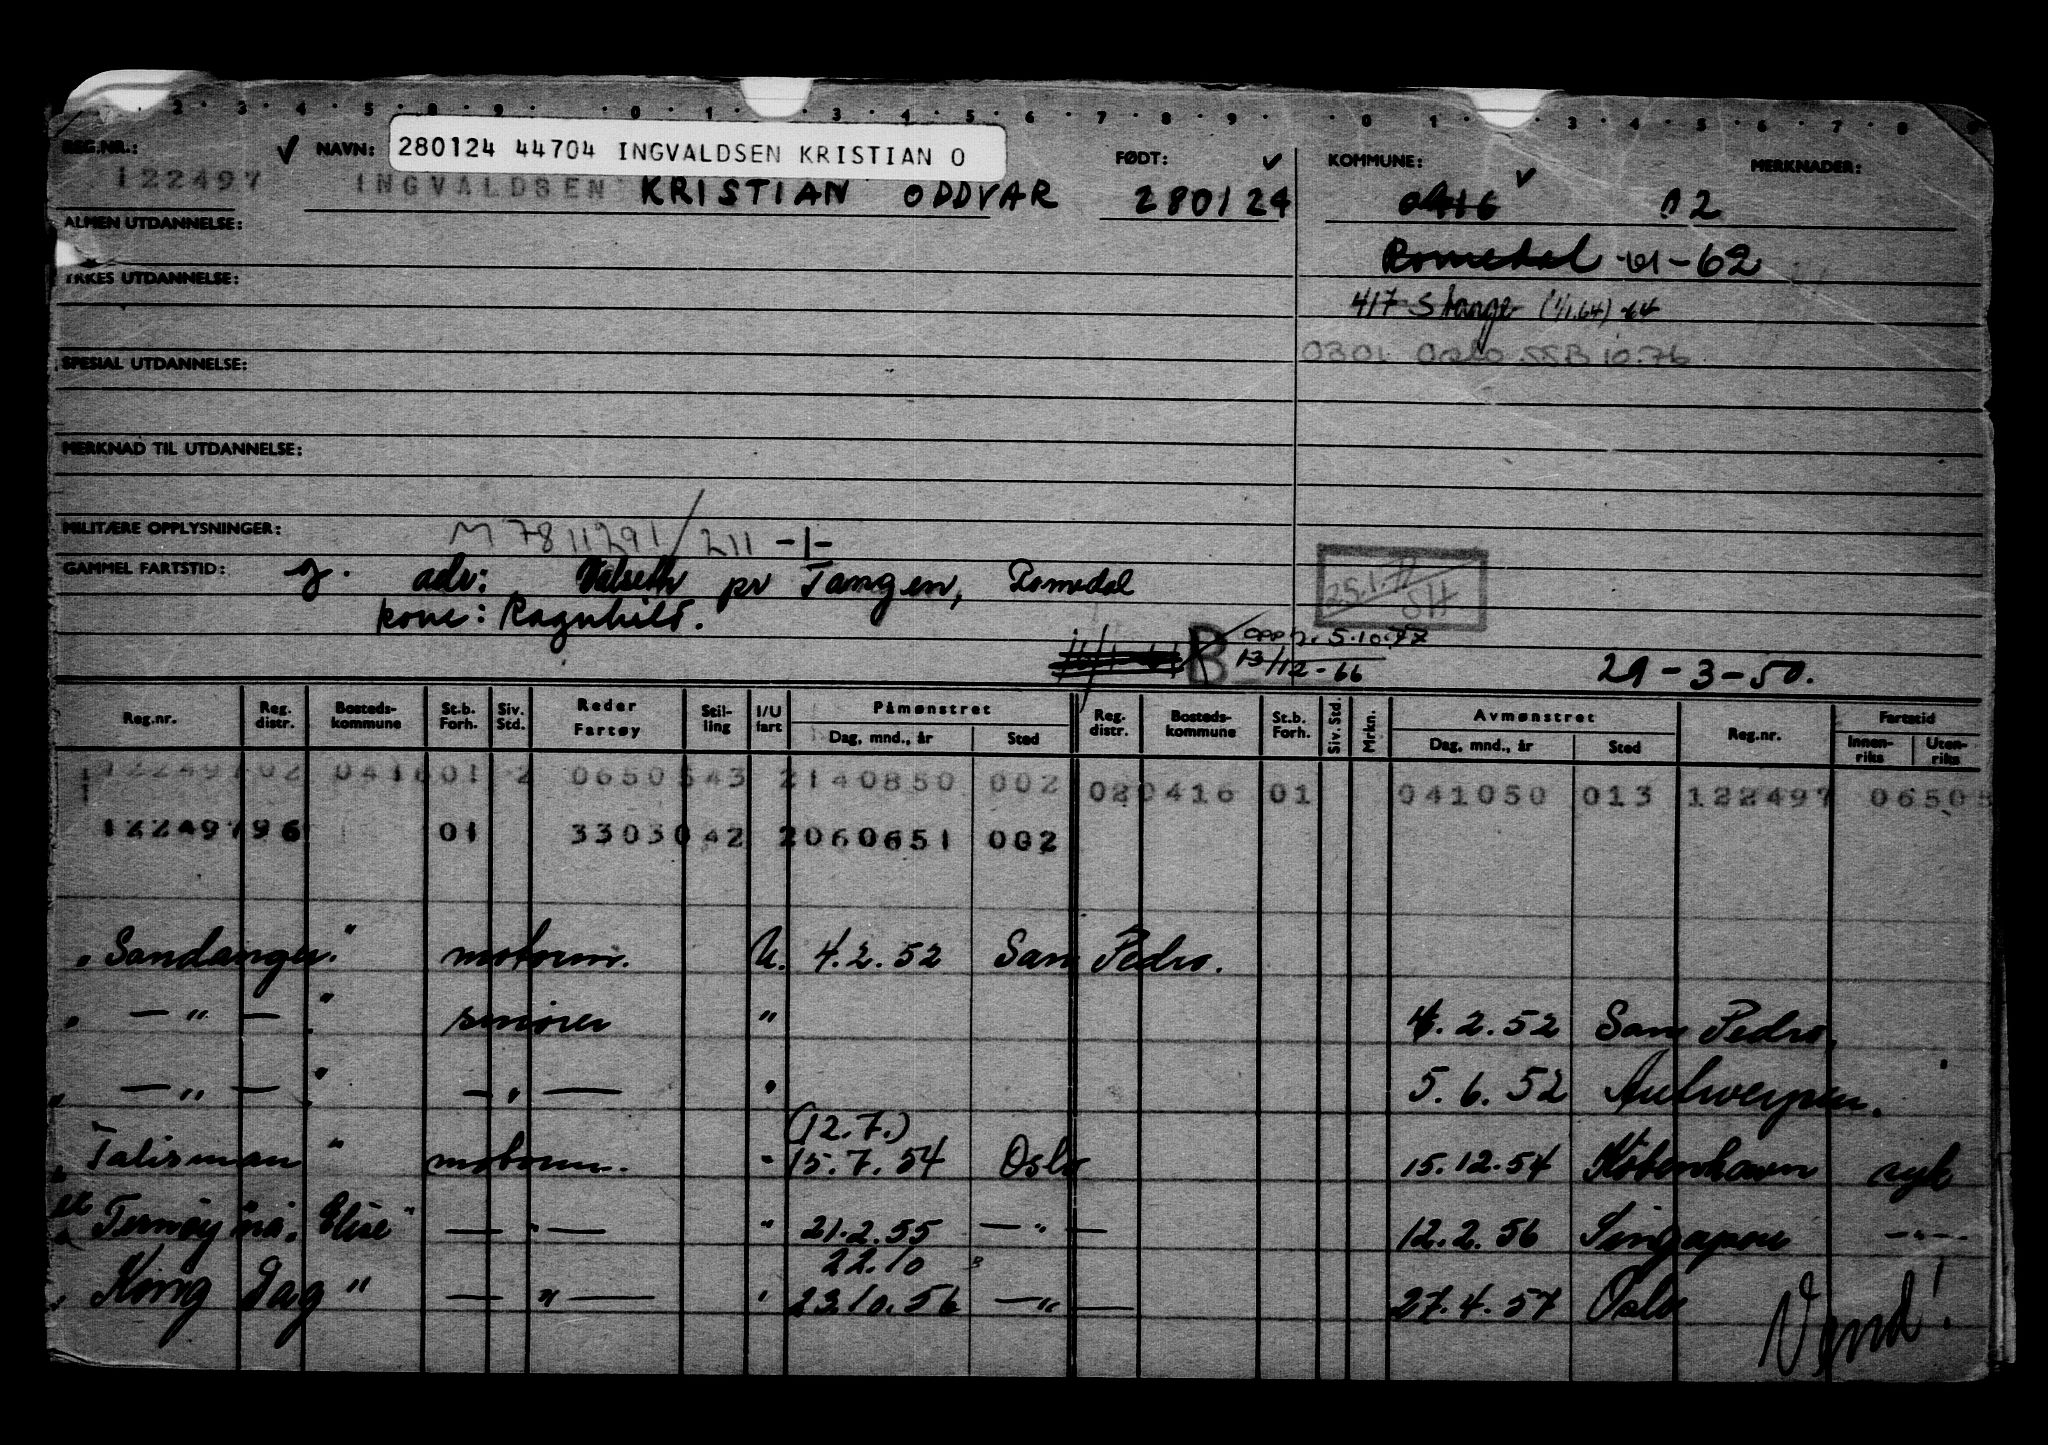 2 3 4 5 8 9 0 1 3 4 5 6 7 8 9 0 1 3 4 5 6 7 8 9
REG.NR.: NAVN: 280124 44704 INGVALDSEN KRISTIAN O FØDT: KOMMUNE: MERKNADER:
122497 INGVALDSEN KRISTIAN ODDVAR 280124 0416 02
ALMEN UTDANNELSE:
Romedal -61-62
YRKES UTDANNELSE:
417 Stange (1/1.64) -64
0301 Oslo SSB 10.76
SPESIAL UTDANNELSE:
MERKNAD TIL UTDANNELSE:
MILITÆRE OPPLYSNINGER: M 7811291/211 -1-
GAMMEL FARTSTID: g. adr: Valseth pr Tangen, Romedal
25.1.72 SH
kone: Ragnhild.
B opph. 5.10.77
13/12-66 29-3-50.
Reg.nr. Reg. distr. Bosteds-kommune St.b. Forh. Siv. Std. Reder Fartøy Stil-ling I/U fart Påmønstret Dag, mnd., år Sted Reg. distr. Bosteds-kommune St.b. Forh. Siv. Std. Mrkn. Avmønstret Dag, mnd., år Sted Reg.nr. Fartstid Innen-riks Uten-riks
122497 02 0416 01 2 0650543 2140850 002 020416 01 041050 013 122497 06505
122497 96 01 3303042 2060651 002
"Sandanger" motorm. U. 4.2.52 San Pedro.
" — " — " smører " 4.2.52 San Pedro.
" — " — " — " — " 5.6.52 Antwerpen.
(12.7.)
"Talisman" motorm. " 15.7.54 Oslo 15.12.54 København syk
"Ternøy nå. Elise" — " — " 21.2.55 — " — 12.2.56 Singapore — " —
22.10
"Kong Dag" — " — " 23.10.56 — " — 27.4.57 Oslo
Vend!